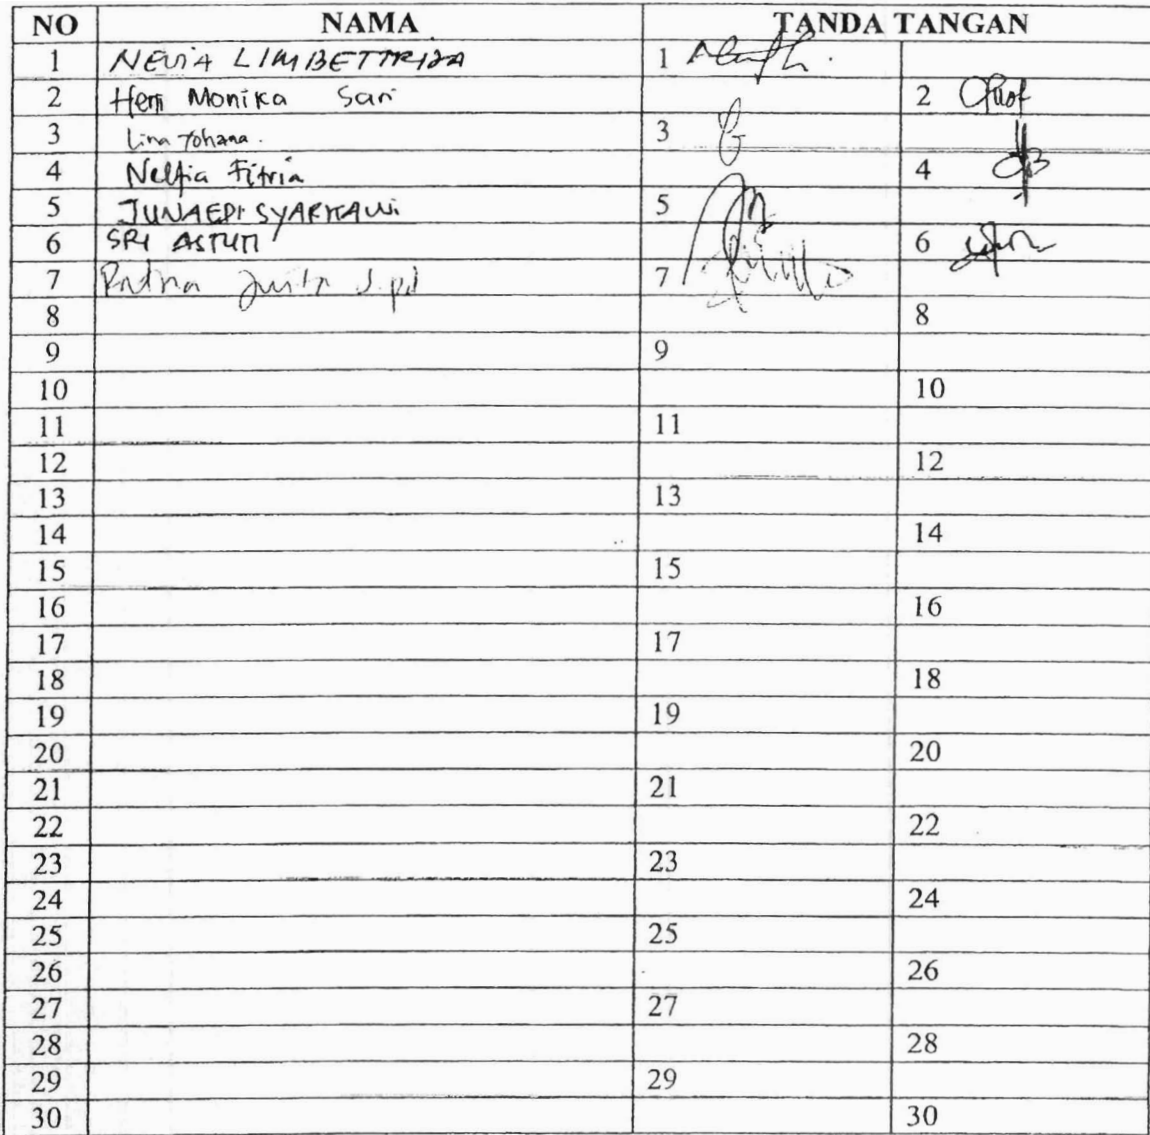 NO NAMA TANDA TANGAN
1 NEVIA LIMBETTRIZA 1
2 Herri Monika Sari 2
3 Lina Yohana. 3
4 Nelfia Fitria 4
5 JUNAEDI SYARKAWI 5
6 SRI ASTUTI 6
7 Ratna Juita S.pd 7
8 8
9 9
10 10
11 11
12 12
13 13
14 14
15 15
16 16
17 17
18 18
19 19
20 20
21 21
22 22
23 23
24 24
25 25
26 26
27 27
28 28
29 29
30 30